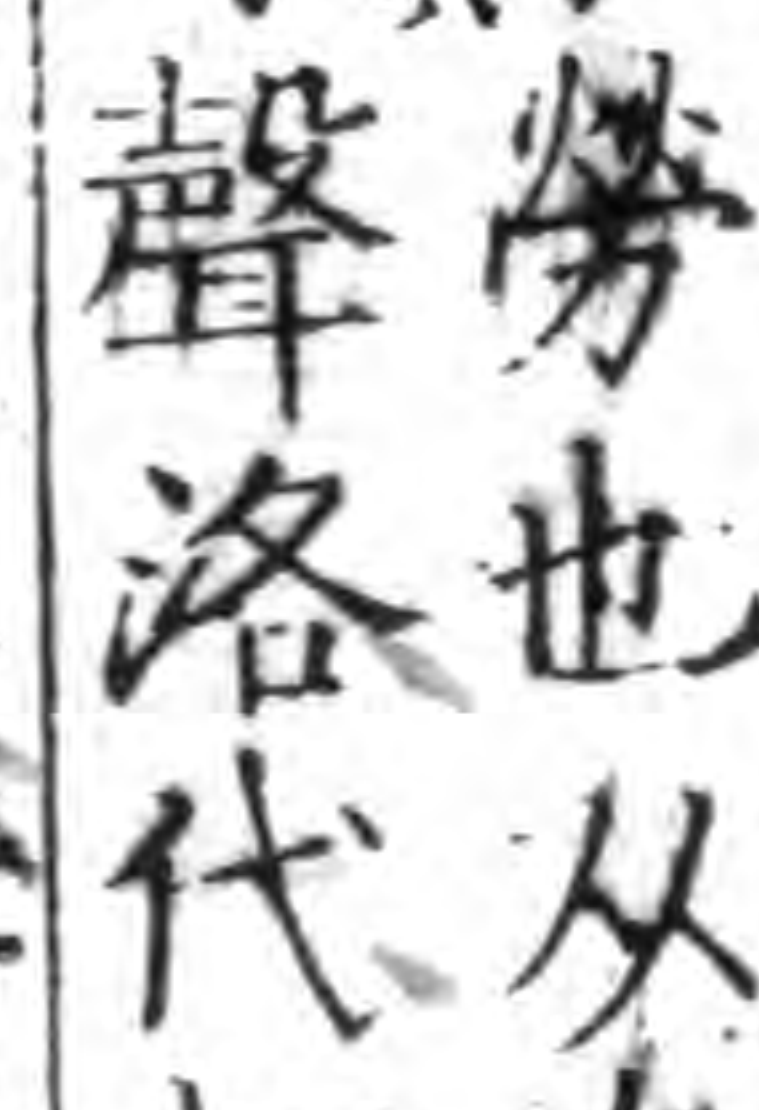 勞也从
聲洛代